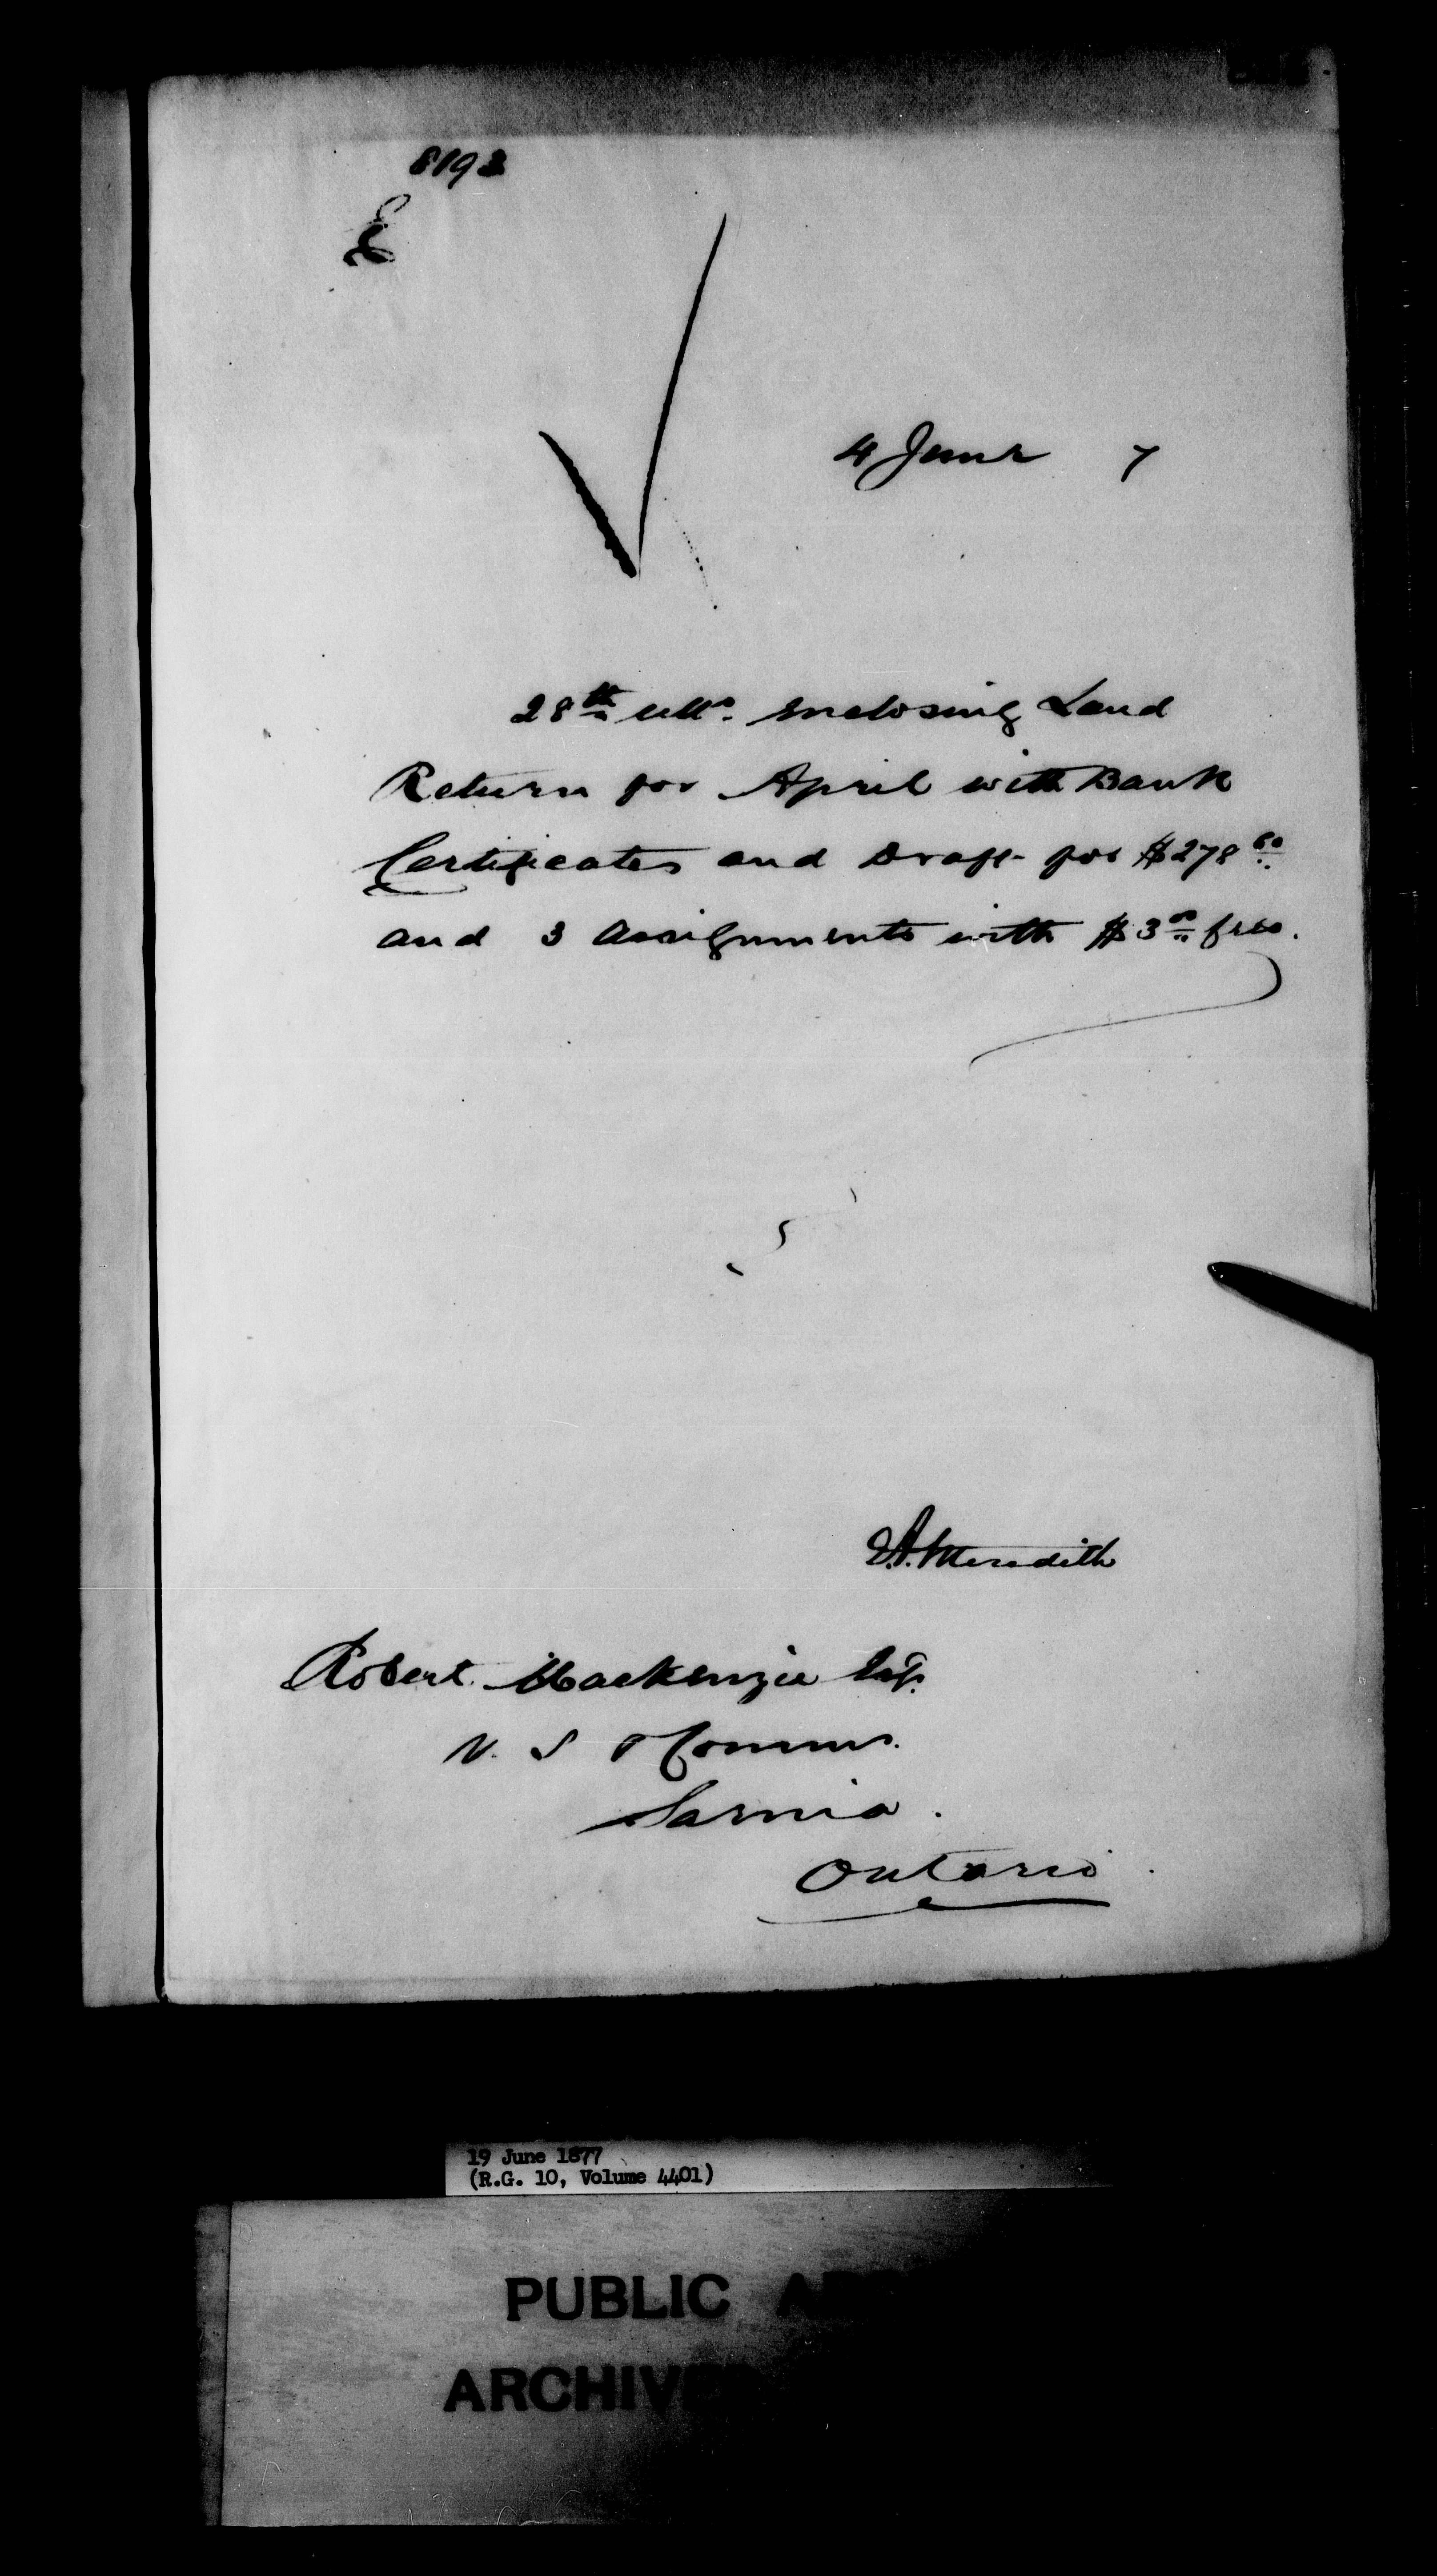 8193
E
4 June 7
28th ulto. enclosing Land
Return for April with Bank
Certificates and Draft for $278 60
and 3 assignments with $3 00 fees.
E.A. Meredith
Robert Mackenzie Esq.
V. S & Commr.
Sarnia.
Ontario.
19 June 1877
(R.G. 10, Volume 4401)
PUBLIC
ARCHIVES